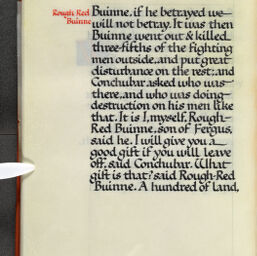 Rough Red
Buinne
Buinne, if he betrayed we
will not betray. It was then
Buinne went out & killed
three-fifths of the fighting
men outside, and put great
disturbance on the rest; and
Conchubar asked who was
there, and who was doing
destruction on his men like
that. It is I, myself, Rough-
Red Buinne, son of Fergus,
said he. I will give you a
good gift if you will leave
off, said Conchubar. What
gift is that? said Rough-Red
Buinne. A hundred of land,